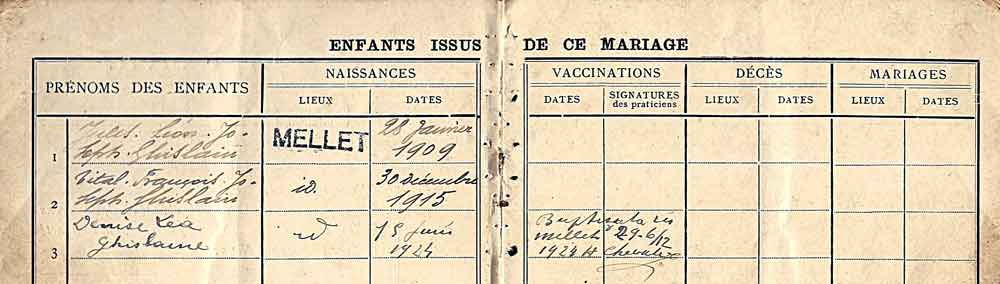 ENFANTS ISSUS DE CE MARIAGE
PRÉNOMS DES ENFANTS
NAISSANCES
LIEUX DATES
VACCINATIONS
DATES SIGNATURES des praticiens
DÉCÈS
LIEUX DATES
MARIAGES
LIEUX DATES
1
Jules. Léon. Jo-
seph. Ghislain
MELLET
28 Janvier
1909
2
Vital. François. Jo-
seph. Ghislain
id.
30 décembre
1915
3
Denise Lea
Ghislaine
id
15 juin
1924
mellet 29-6/
1924